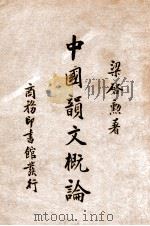 梁啓勳著
中國韻文概論
商務印書館發行
www.toutu8.com